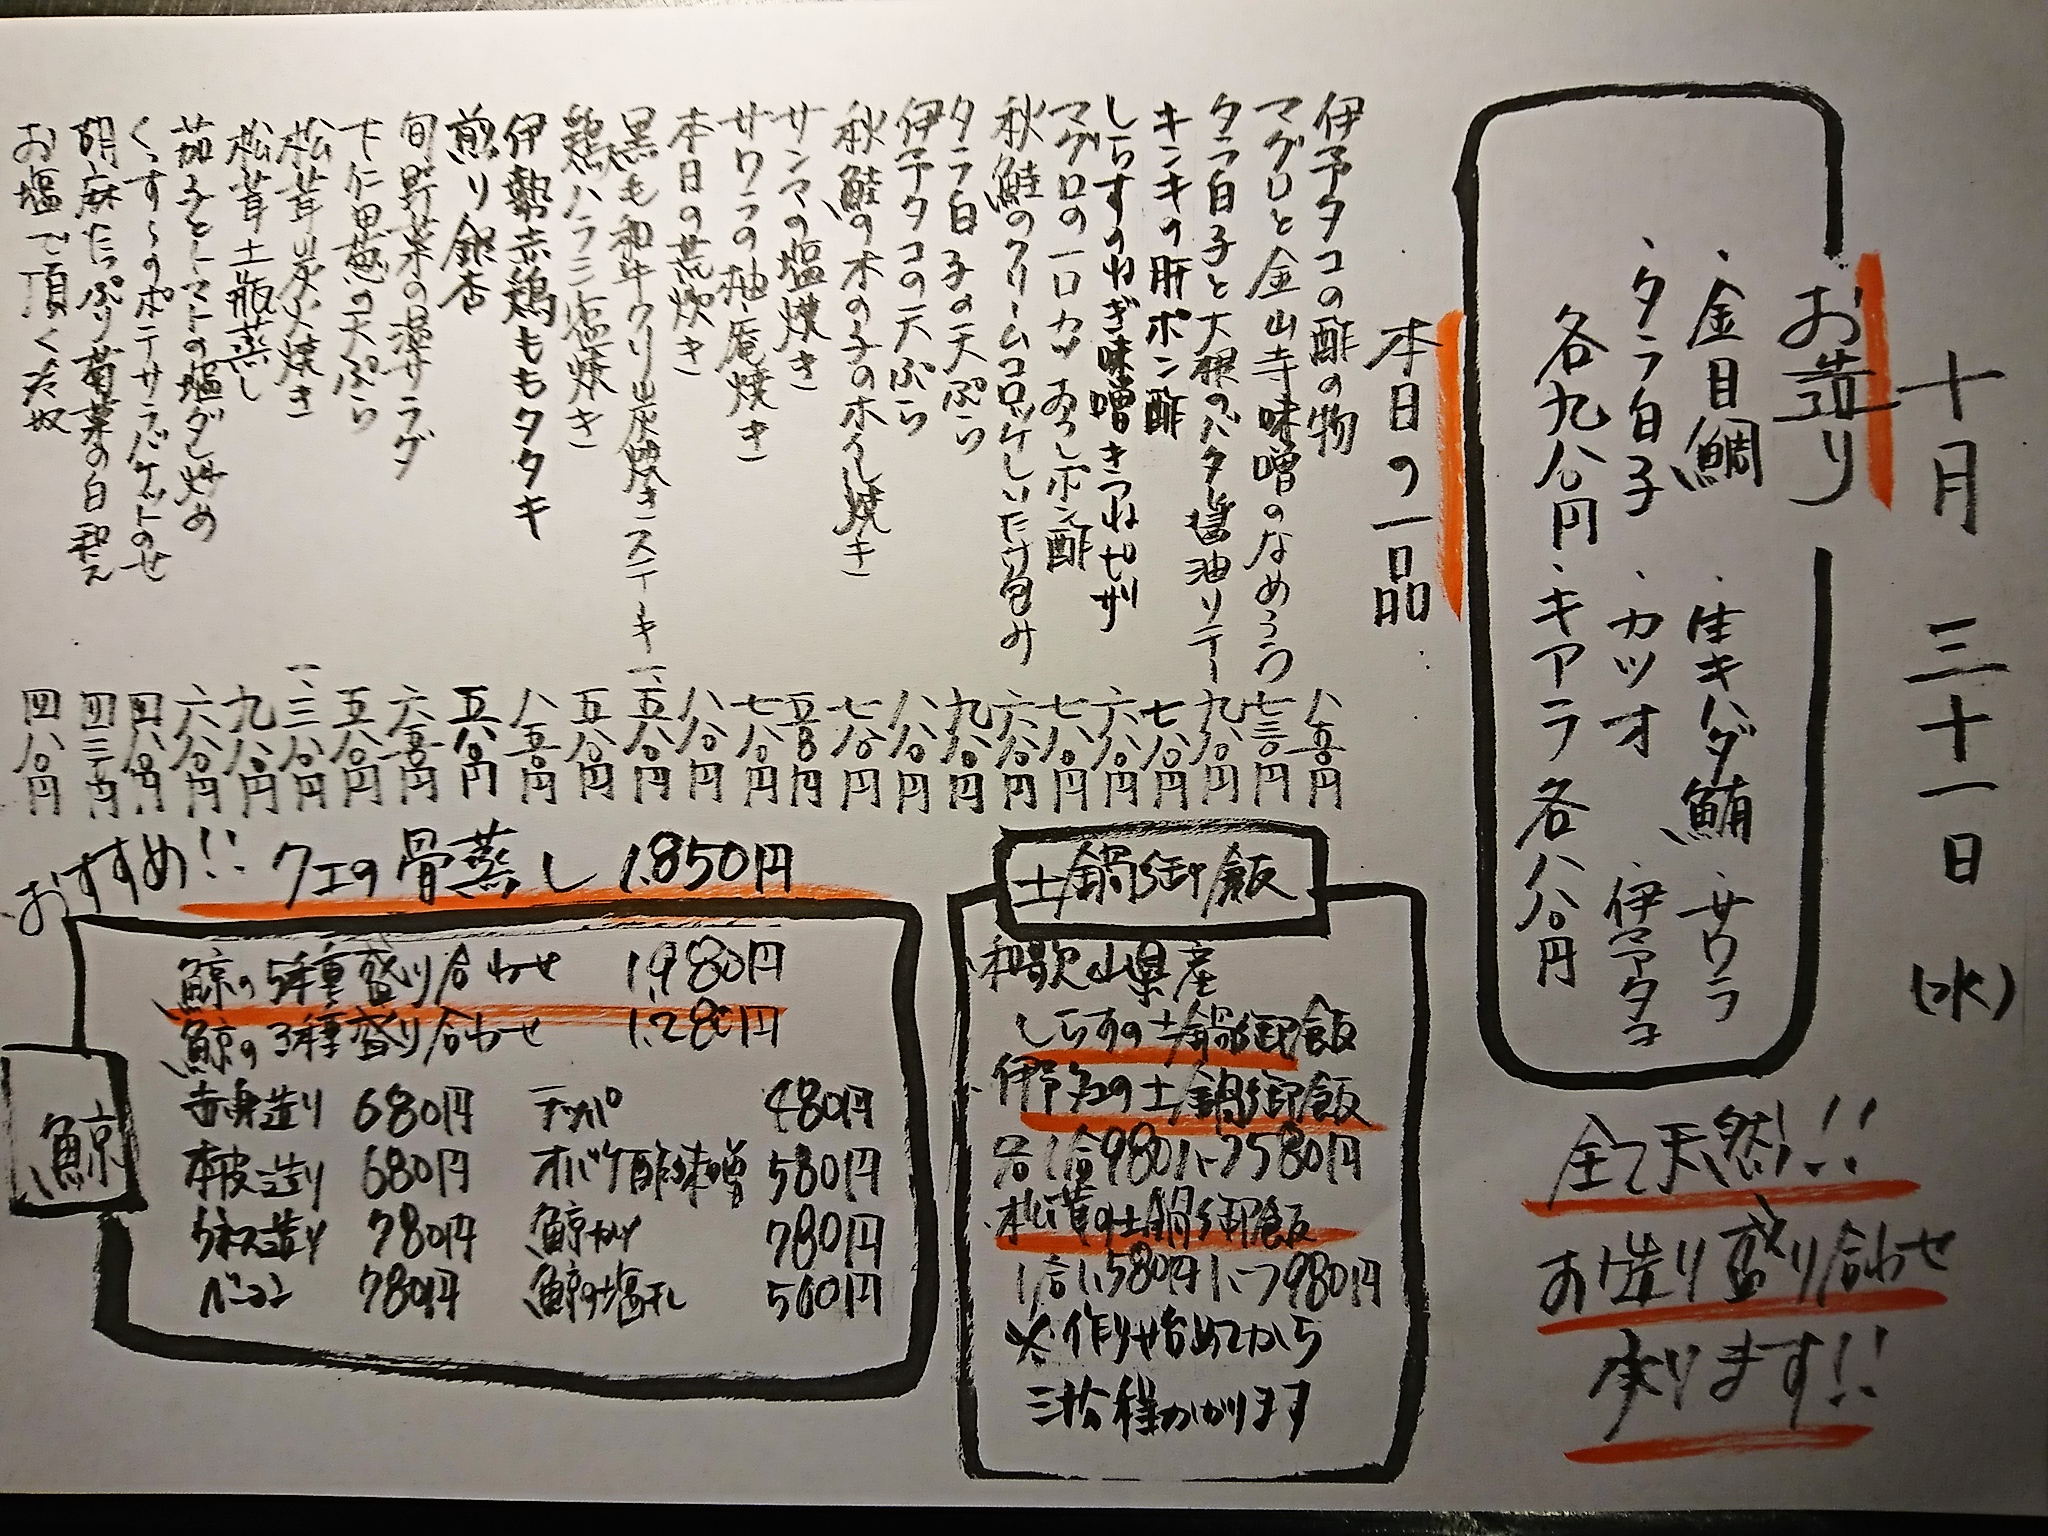 十月三十一日(水)
お造り
・金目鯛 ・生キハダ鮪 ・サワラ
・タラ白子 ・カツオ ・伊予タコ
各九八〇円 ・キアラ各八八〇円
全て天然!!
お造り盛り合わせ
承ります!!
本日の一品
伊予タコの酢の物 八五〇円
マグロと金山寺味噌のなめろう 七三〇円
タラ白子と大根のバター醤油ソテー 九八〇円
キンキの肝ポン酢 七八〇円
しらすのねぎ味噌きつねピザ 六八〇円
マグロの一口カツ おろしポン酢 七八〇円
秋鮭のクリームコロッケしいたけ包み 六八〇円
タラ白子の天ぷら 九八〇円
伊予タコの天ぷら 八八〇円
秋鮭の木の子のホイル焼き 七八〇円
サンマの塩焼き 五八〇円
サワラの柚庵焼き 七八〇円
本日の荒炊き 八八〇円
黒毛和牛クリ炭焼きステーキ 一、五八〇円
鶏ハラミ塩焼き 五八〇円
伊勢赤鶏ももタタキ 八五〇円
煎り銀杏 五八〇円
旬野菜の温サラダ 六五〇円
下仁田葱の天ぷら 五八〇円
松茸炭火焼き 一、三八〇円
松茸土瓶蒸し 九八〇円
茄子とトマトの塩ダレ炒め 六八〇円
くんすーのポテサラバケットのせ 四八〇円
胡麻たっぷり菊菜の白和え 四三〇円
お塩で頂く冷奴 四八〇円
土鍋御飯
和歌山県産
しらすの土鍋御飯
伊予タコの土鍋御飯
各1合980円1.5 1580円
松茸の土鍋御飯
1合1,580円 1.5 1980円
※作り始めてから
三十分程かかります
おすすめ!! クエの骨蒸し 1,850円
鯨
鯨の5種盛り合わせ 1,980円
鯨の3種盛り合わせ 1,280円
赤身造り 680円 テッパ 480円
本皮造り 680円 オバケ酢味噌 580円
ウネス造り 780円 鯨カツ 780円
ベーコン 780円 鯨の塩干し 560円